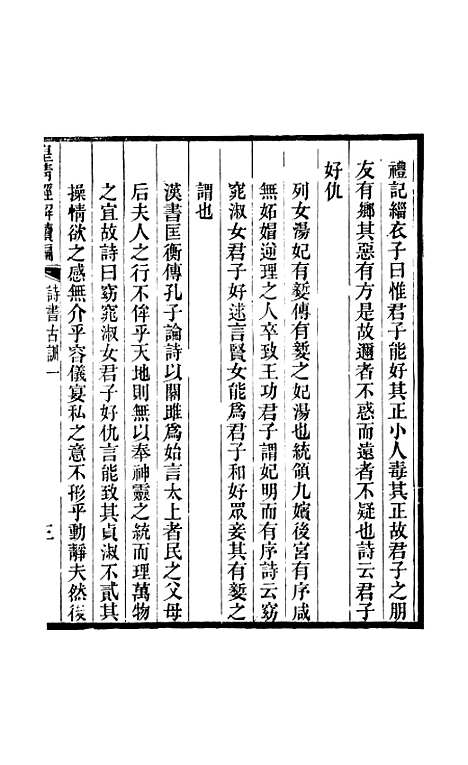 禮記緇衣子曰惟君子能好其正小人毒其正故君子之朋
友有鄉其惡有方是故邇者不惑而遠者不疑也詩云君子
好仇
列女湯妃有㜪傳有㜪之妃湯也統領九嬪後宮有序咸
無妬媢逆理之人卒致王功君子謂妃明而有序詩云窈
窕淑女君子好逑言賢女能爲君子和好眾妾其有㜪之
謂也
漢書匡衡傳孔子論詩以關雎爲始言太上者民之父母
后夫人之行不侔乎天地則無以奉神靈之統而理萬物
之宜故詩曰窈窕淑女君子好仇言能致其貞淑不貳其
操情欲之感無介乎容儀宴私之意不形乎動靜夫然後
皇清經解續編
詩書古訓一
三